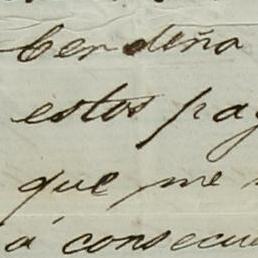 Cerdeña
estos pag
que me
á consecue